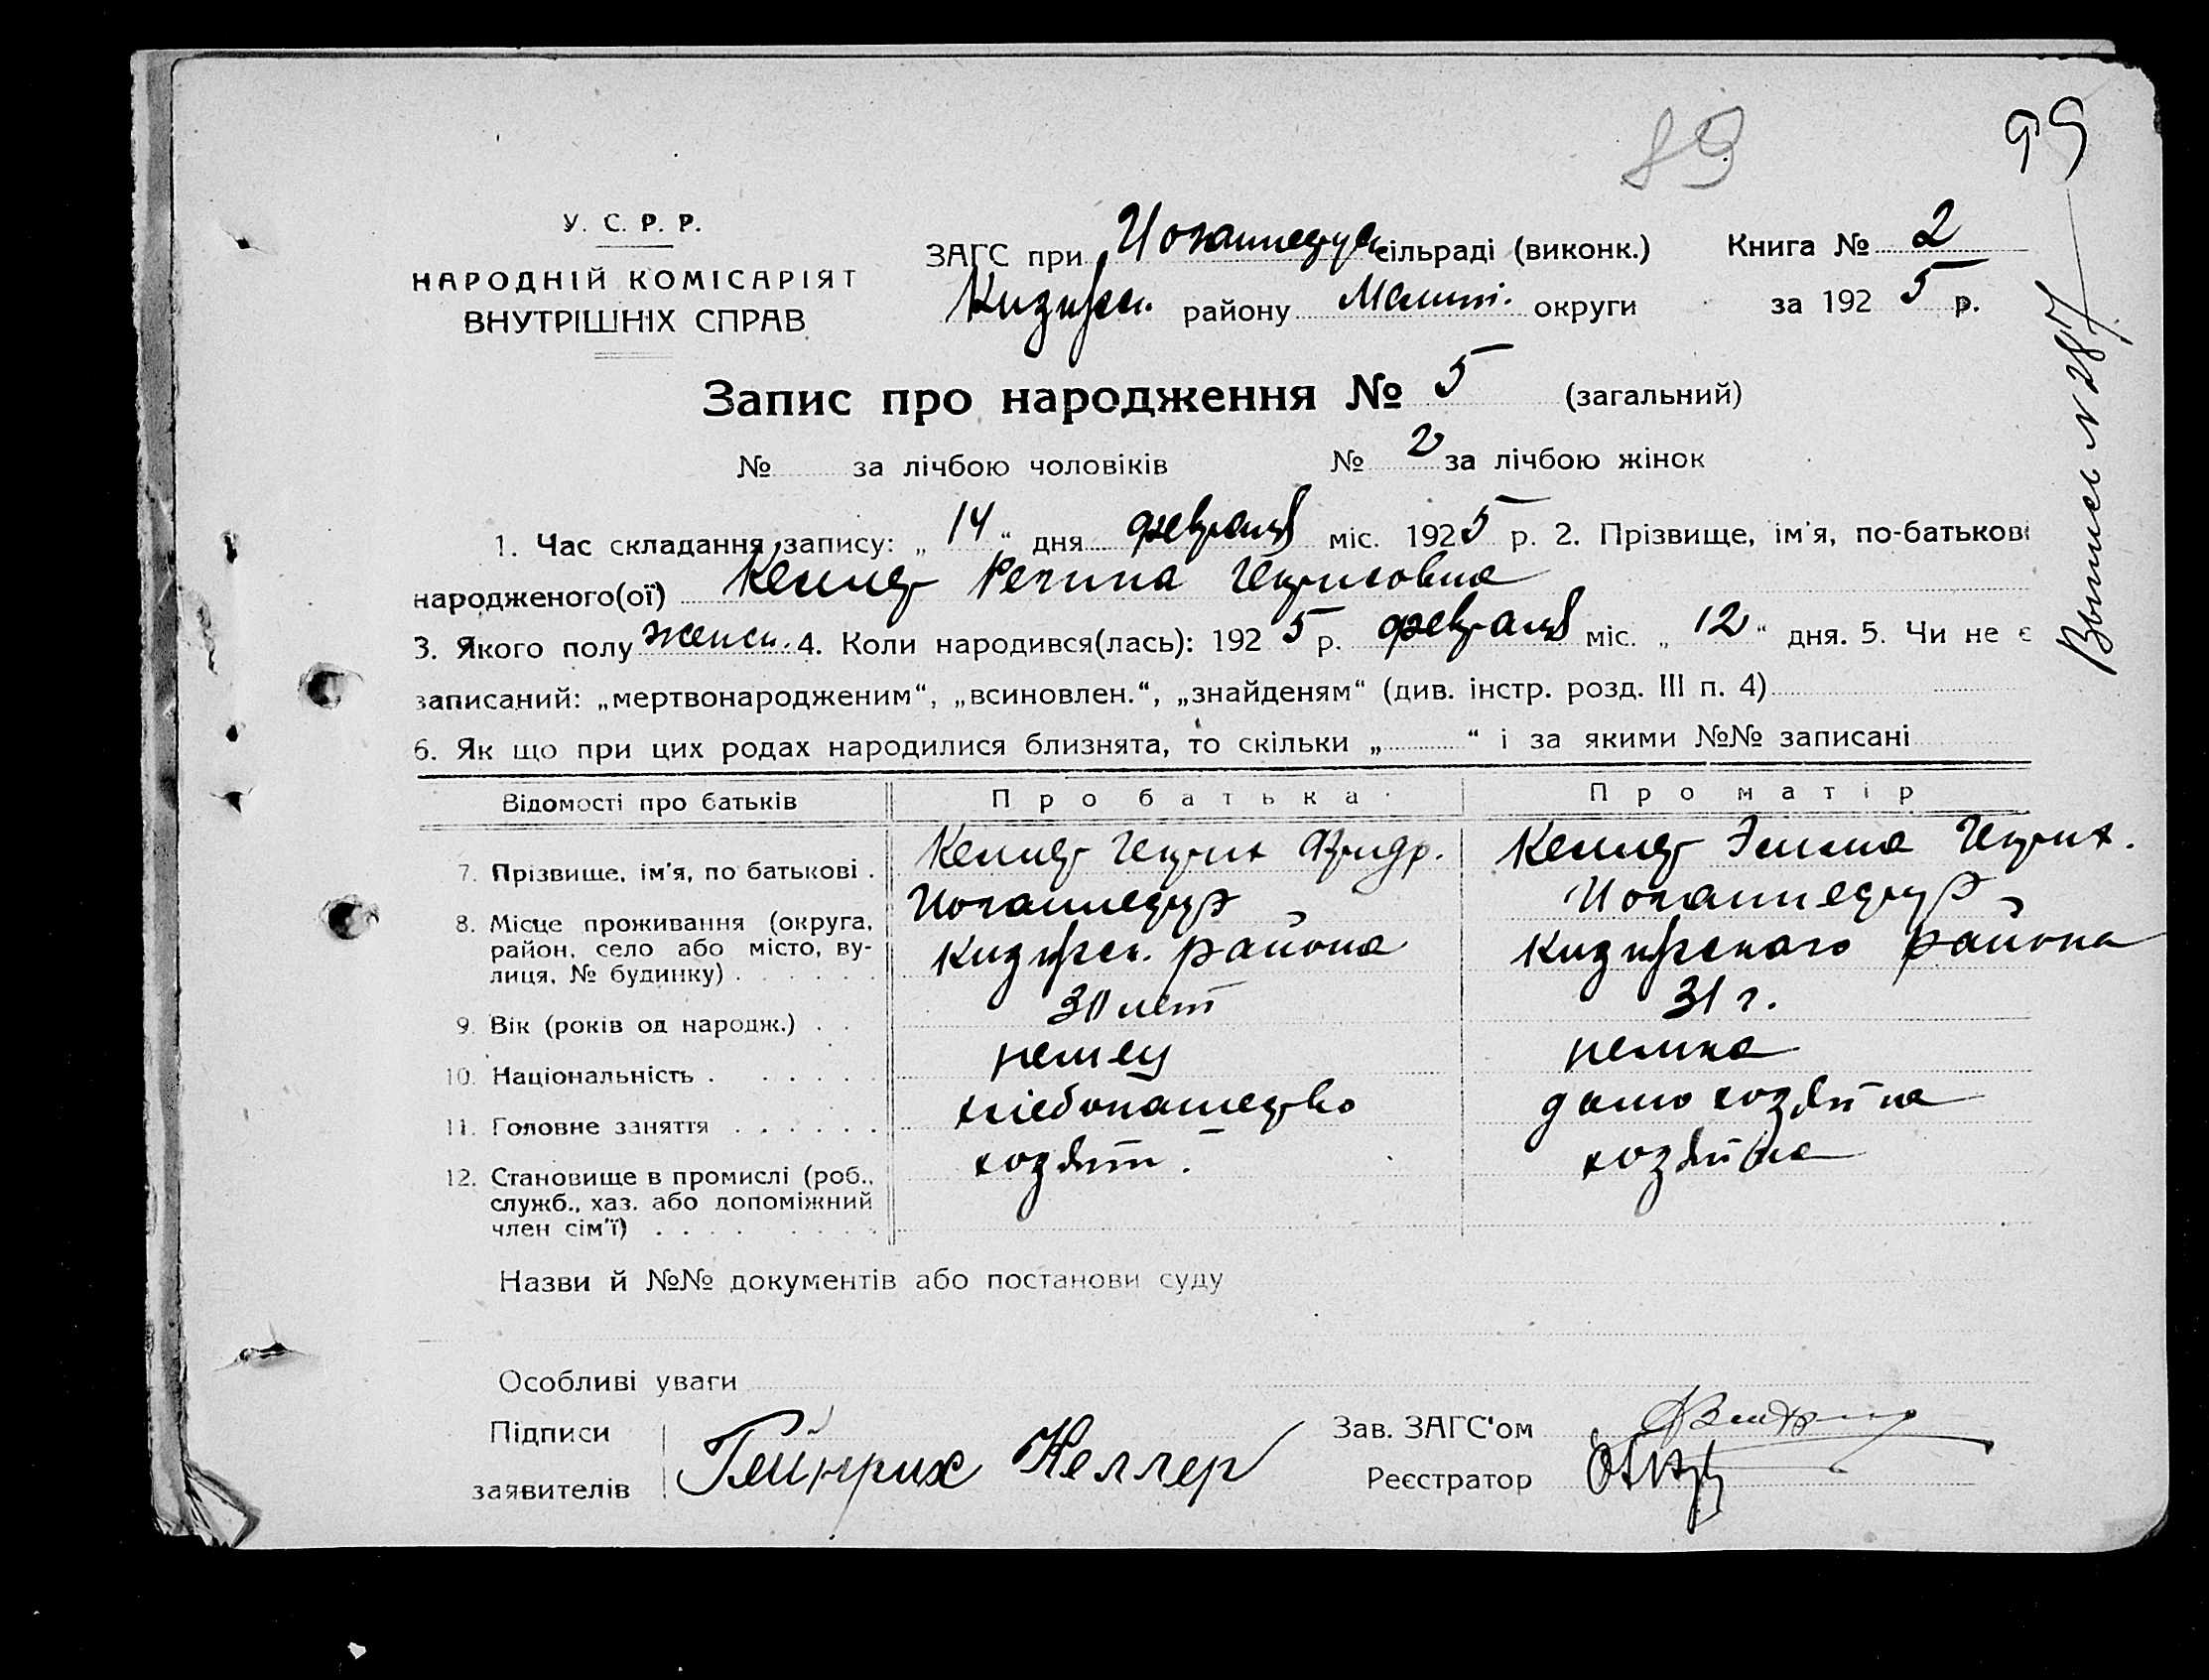 89
99
У. С. Р. Р.
НАРОДНІЙ КОМІСАРІЯТ
ВНУТРІШНІХ СПРАВ
ЗАГС при Иоганнедур. сільраді (виконк.) Книга № 2
району округи за 192 5 р.
Выпись № 287
Запис про народження № 5 (загальний)
№ за лічбою чоловіків № 2 за лічбою жінок
1. Час складання запису: „ 14 “ дня февраля міс. 192 5 р. 2. Прізвище, ім'я, по-батькові
народженого(ої) Келлер Регина Генриховна
3. Якого полу женск. 4. Коли народився(лась): 192 5 р. февраля міс. „ 12 “ дня. 5. Чи не є
записаний: „мертвонародженим“, „всиновлен.“, „знайденям“ (див. інстр. розд. III п. 4)
6. Як що при цих родах народилися близнята, то скільки „ “ і за якими №№ записані
Відомості про батьків Про батька Про матір
7. Прізвище, ім'я, по батькові . Келлер Генрих Фридр. Келлер Эмма Генрих.
8. Місце проживання (округа, Иоганнедурф Иоганнедурф
район, село або місто, ву- района района
лиця, № будинку) . . . . . .
9. Вік (років од народж.) . . 30 лет 31 г.
10. Національність . . . . . . немец немка
11. Головне заняття . . . . . . хлебопашество домохозяйка
12. Становище в промислі (роб., хозяин.
служб., хаз. або допоміжний
член сім'ї) . . . . . . . .
Назви й №№ документів або постанови суду
Особливі уваги
Підписи
заявителів Гейнрих Келлер
Зав. ЗАГС'ом
Реєстратор